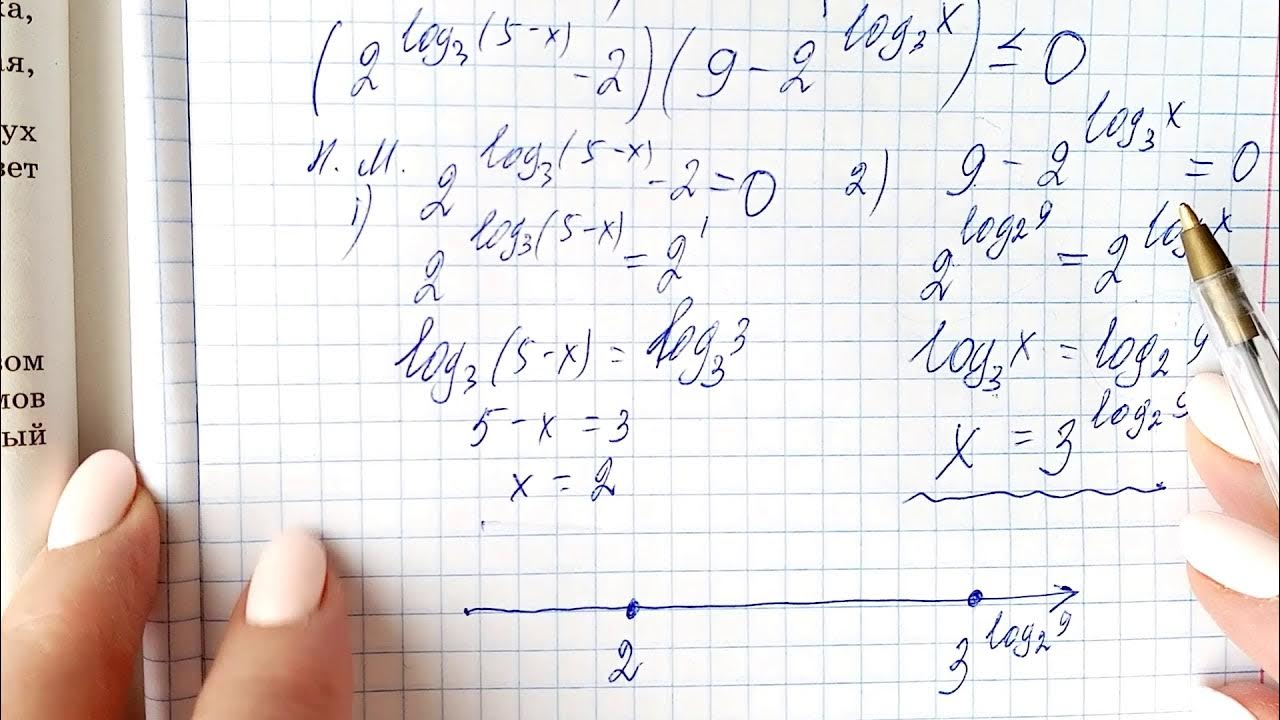 ух
вет
ый
(2^{log_3(5-x)} - 2)(9 - 2^{log_3 x}) ≤ 0
И. М.
1) 2^{log_3(5-x)} - 2 = 0
2^{log_3(5-x)} = 2^1
log_3(5-x) = log_3 3
5 - x = 3
x = 2
2) 9 - 2^{log_3 x} = 0
2^{log_2 9} = 2^{log_3 x}
log_3 x = log_2 9
x = 3^{log_2 9}
2 3^{log_2 9}